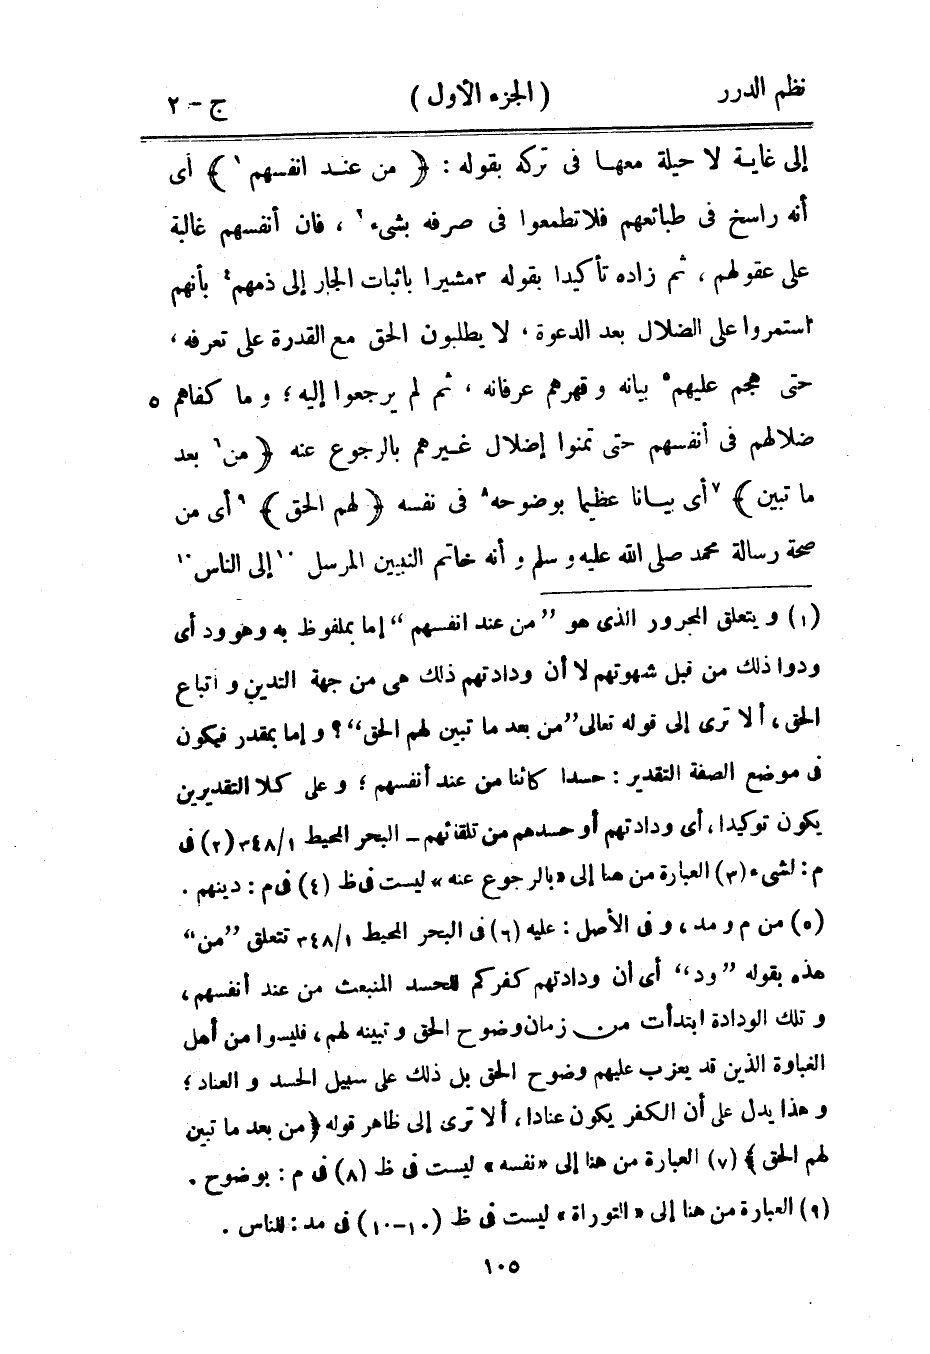 نظم الدرر ( الجزء الأول ) ج - ٢
إلى غاية لا حيلة معها فى تركه بقوله : ﴿ من عند انفسهم ١ ﴾ أى
أنه راسخ فى طبائعهم فلاتطمعوا فى صرفه بشىء ٢ ، فان أنفسهم غالبة
على عقولهم ، ثم زاده تأكيدا بقوله ٣مشيرا باثبات الجار إلى ذمهم٤ بأنهم
استمروا على الضلال بعد الدعوة ، لا يطلبون الحق مع القدرة على تعرفه ،
حتى هجم عليهم٥ بيانه و قهرهم عرفانه ، ثم لم يرجعوا إليه ؛ و ما كفاهم ٥
ضلالهم فى أنفسهم حتى تمنوا إضلال غيرهم بالرجوع عنه ﴿ من٦ بعد
ما تبين ﴾ ٧أى بيانا عظيما بوضوحه٨ فى نفسه ﴿ لهم الحق ﴾ ٩أى من
صحة رسالة محمد صلى الله عليه و سلم و أنه خاتم النبيين المرسل ١٠إلى الناس١٠
(١) و يتعلق المجرور الذى هو ”من عند انفسهم“ إما بملفوظ به وهو ود أى
ودوا ذلك من قبل شهوتهم لا أن ودادتهم ذلك هى من جهة التدين و اتباع
الحق ، ألا ترى إلى قوله تعالى ”من بعد ما تبين لهم الحق“ ؟ و إما بمقدر فيكون
فى موضع الصفة التقدير : حسدا كائنا من عند أنفسهم ؛ و على كلا التقديرين
يكون توكيدا ، أى ودادتهم أو حسدهم من تلقائهم ـ البحر المحيط ١/٣٤٨ (٢) فى
م : لشىء (٣) العبارة من هنا إلى «بالرجوع عنه» ليست فى ظ (٤) فى م : دينهم .
(٥) من م و مد ، و فى الأصل : عليه (٦) فى البحر المحيط ١/٣٤٨ تتعلق ”من“
هذه بقوله ”ود“ أى أن ودادتهم كفركم للحسد المنبعث من عند أنفسهم ،
و تلك الودادة ابتدأت من زمان وضوح الحق و تبينه لهم ، فليسوا من أهل
الغباوة الذين قد يعزب عليهم وضوح الحق بل ذلك على سبيل الحسد و العناد ؛
و هذا يدل على أن الكفر يكون عنادا ، ألا ترى إلى ظاهر قوله ﴿ من بعد ما تبين
لهم الحق ﴾ (٧) العبارة من هنا إلى «نفسه» ليست فى ظ (٨) فى م : بوضوح .
(٩) العبارة من هنا إلى «التوراة» ليست فى ظ (١٠-١٠) فى مد : للناس .
١٠٥